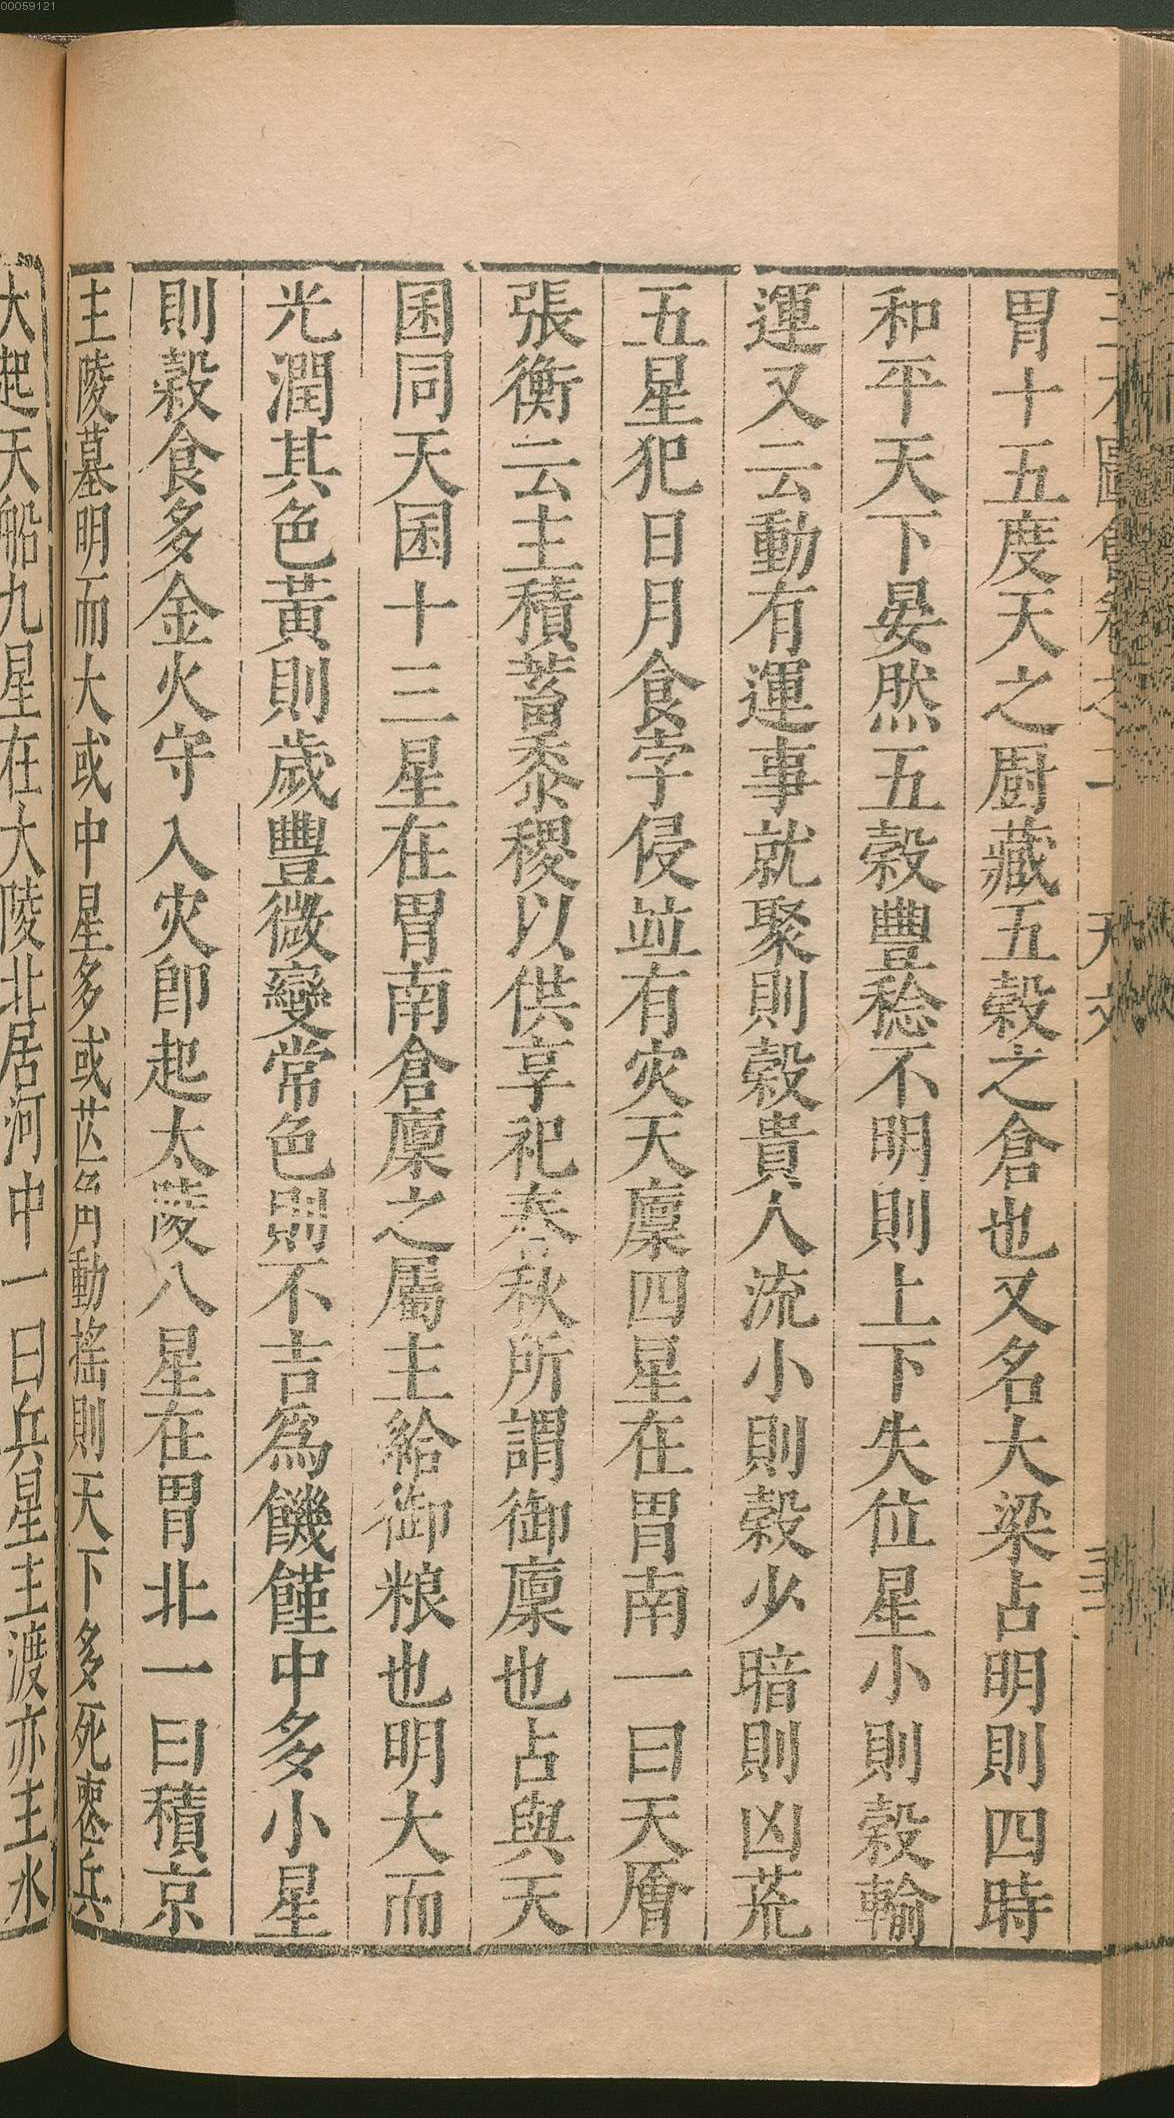 胃十五度天之厨藏五穀之倉也又名大梁占明則四時
和平天下晏然五穀豐稔不明則上下失位星小則穀輸
運又云動有運事就聚則穀貴人流小則穀少暗則凶荒
五星犯日月食孛侵並有灾天廩四星在胃南一曰天㢑
張衡云主積蓄黍稷以供享祀春秋所謂御廩也占與天
囷同天囷十三星在胃南倉廩之屬主給御粮也明大而
光潤其色黃則歲豐微變常色則不吉為饑饉中多小星
則穀食多金火守入灾即起太陵八星在胃北一曰積京
主陵墓明而大或中星多或芒角動搖則天下多死喪兵
大起天船九星在大陵北居河中一曰兵星主渡亦主水
00059121